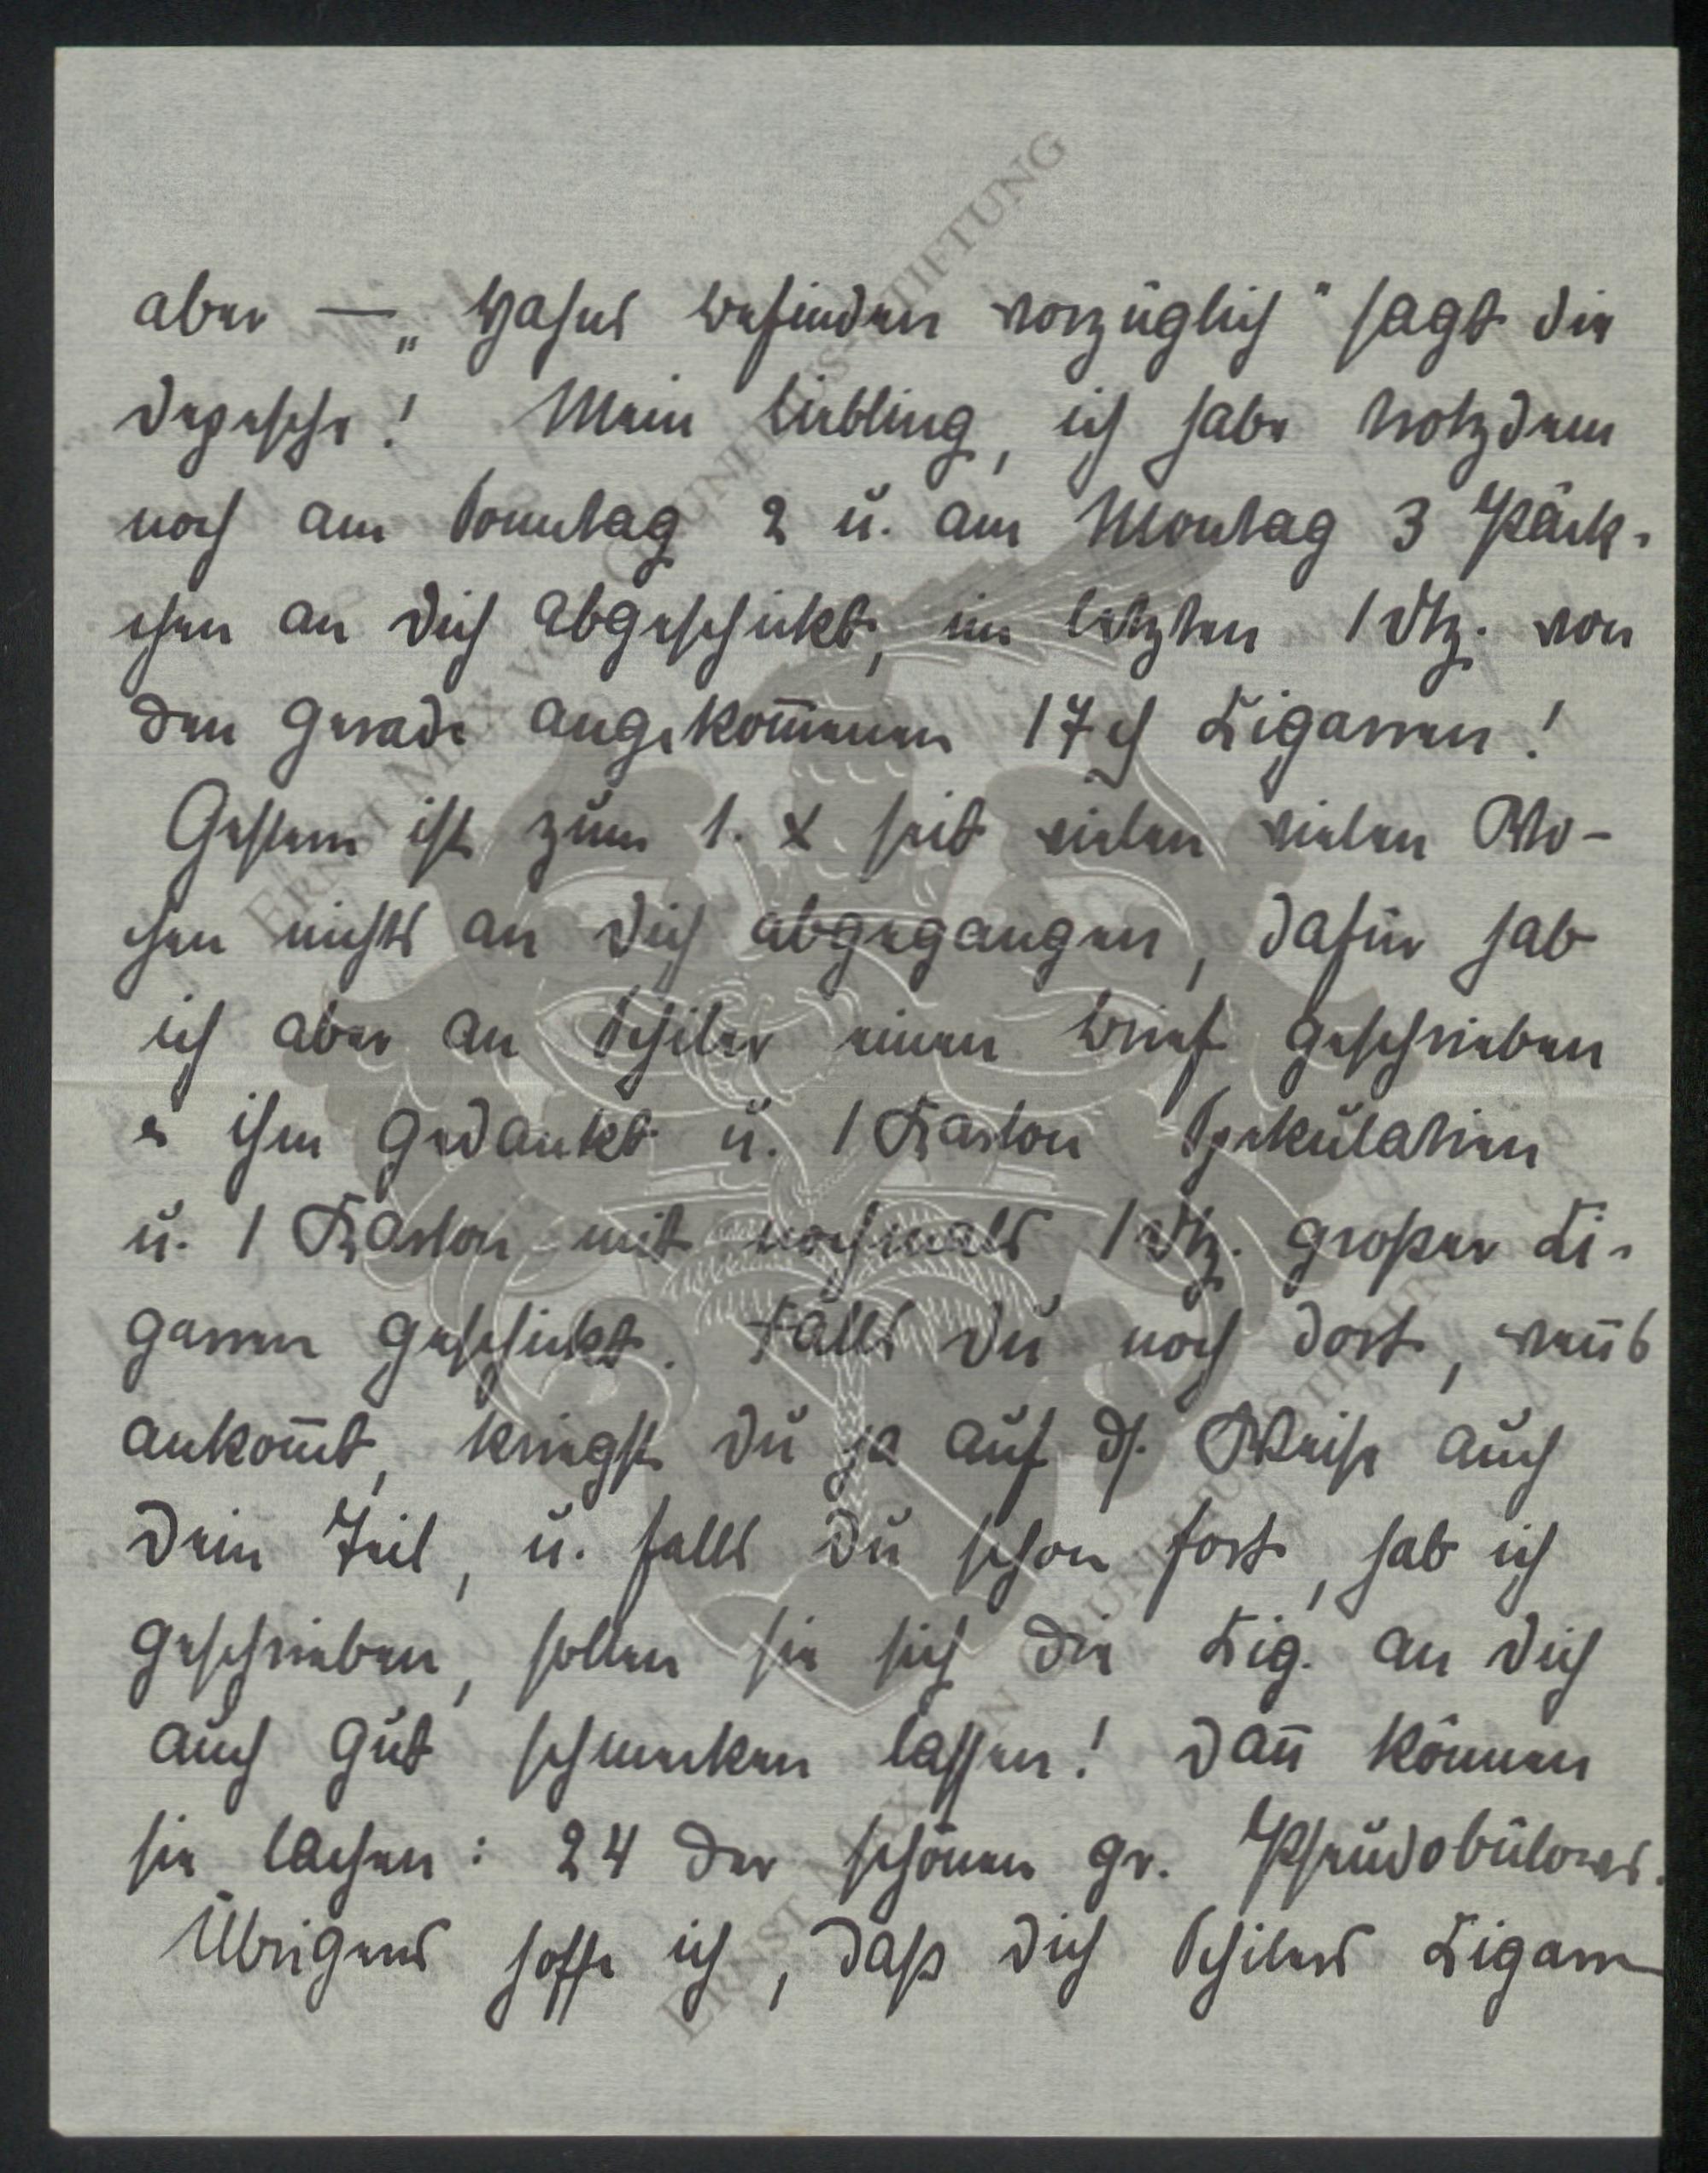 aber — „Hahns befinden vorzüglich" sagt die
Depesche! Mein Liebling, ich habe trotzdem
noch am Sonntag 2 u. am Montag 3 Päck-
chen an Dich abgeschickt, im letzten 1 Dtz. von
den gerade angekom̅enen 17 Zigarren!
Gestern ist zum 1. x seit vielen vielen Wo-
chen nichts an Dich abgegangen, dafür hab
ich aber an Schiler einen Brief geschrieben
ihm gedankt u. 1 Karton Spekulatien
u. 1 Karton mit nochmals 1 Dtz. großer Zi-
garren geschickt. Falls Du noch dort, wen̅s
ankom̅t, kriegst Du ja auf ds. Weise auch
Dein Teil, u. falls Du schon fort, hab ich
geschrieben, sollen sie sich die Zig. an Dich
auch gut schmecken lassen! Dan̅ können
sie lachen: 24 der schönen gr. Pseudobülows.
Übrigens hoffe ich, daß Dich Schilers Zigarren
ERNST MAX VON GRUNELIUS-STIFTUNG
ERNST MAX VON GRUNELIUS-STIFTUNG